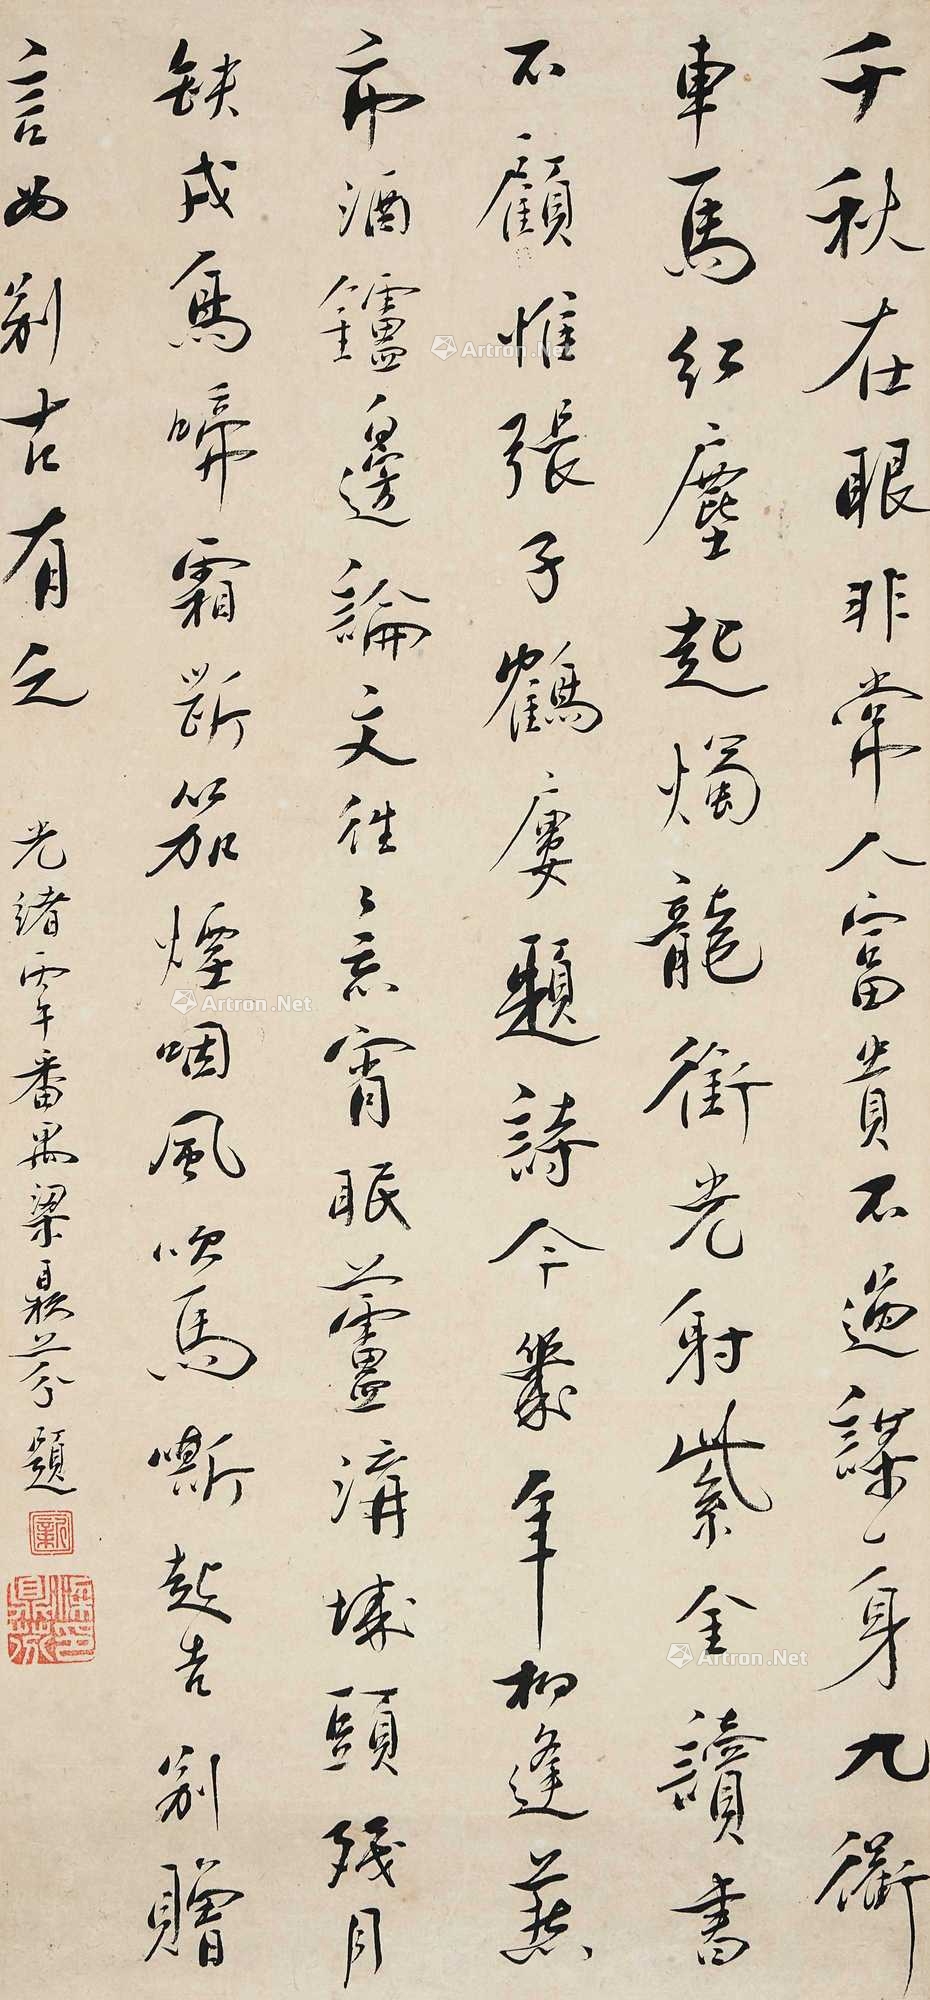 千秋在眼非常人富貴不過謀一身九衢
車馬紅塵起燭龍銜光射紫金讀書
不顧惟張子鶴屢題詩今幾年相逢燕
市酒鑪邊論文往々忘宵眠蘆溝城頭殘月
缺戍烏啼霜斷笳煙咽風吹馬嘶起告別贈
言如別古有之
光緒丙午番禺梁鼎芬題
梁鼎芬印
Artron.Net
Artron.Net
Artron.Net